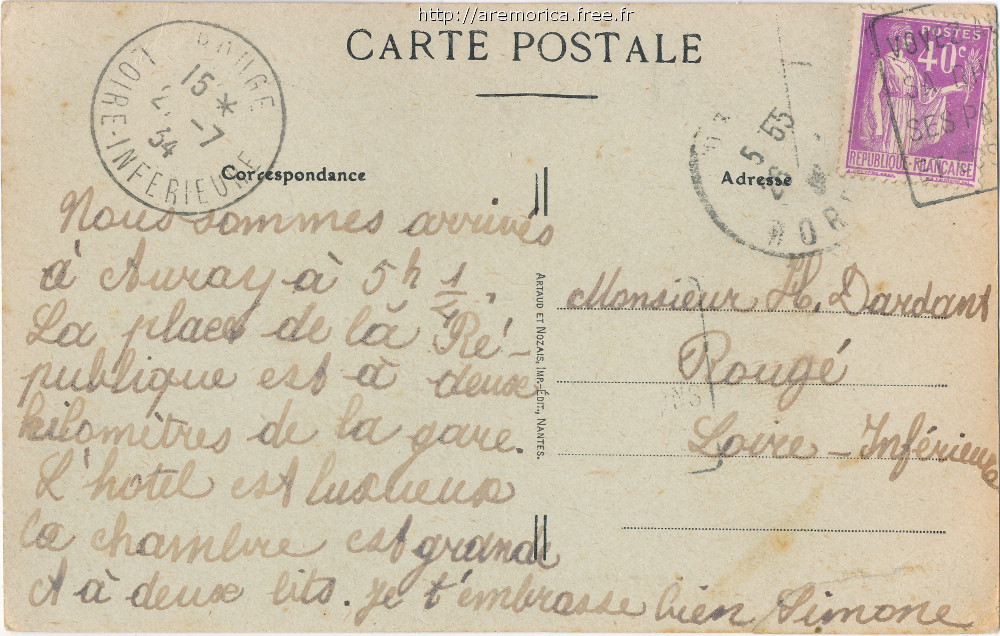 http://aremorica.free.fr
CARTE POSTALE
ROUGE
15 *
2 -7
34
LOIRE-INFERIEURE
POSTES
40c
REPUBLIQUE-FRANÇAISE
SES
5 55
Correspondance
Adresse
Nous sommes arrivés
à Auray à 5h 1/4,
La place de la Ré-
publique est à deux
kilomètres de la gare.
L'hotel est luxueux
la chambre est grande
et à deux lits. Je t'embrasse bien Simone
ARTAUD ET NOZAIS, IMP.-ÉDIT., NANTES.
Monsieur H. Dardant
Rougé
Loire-Inférieure